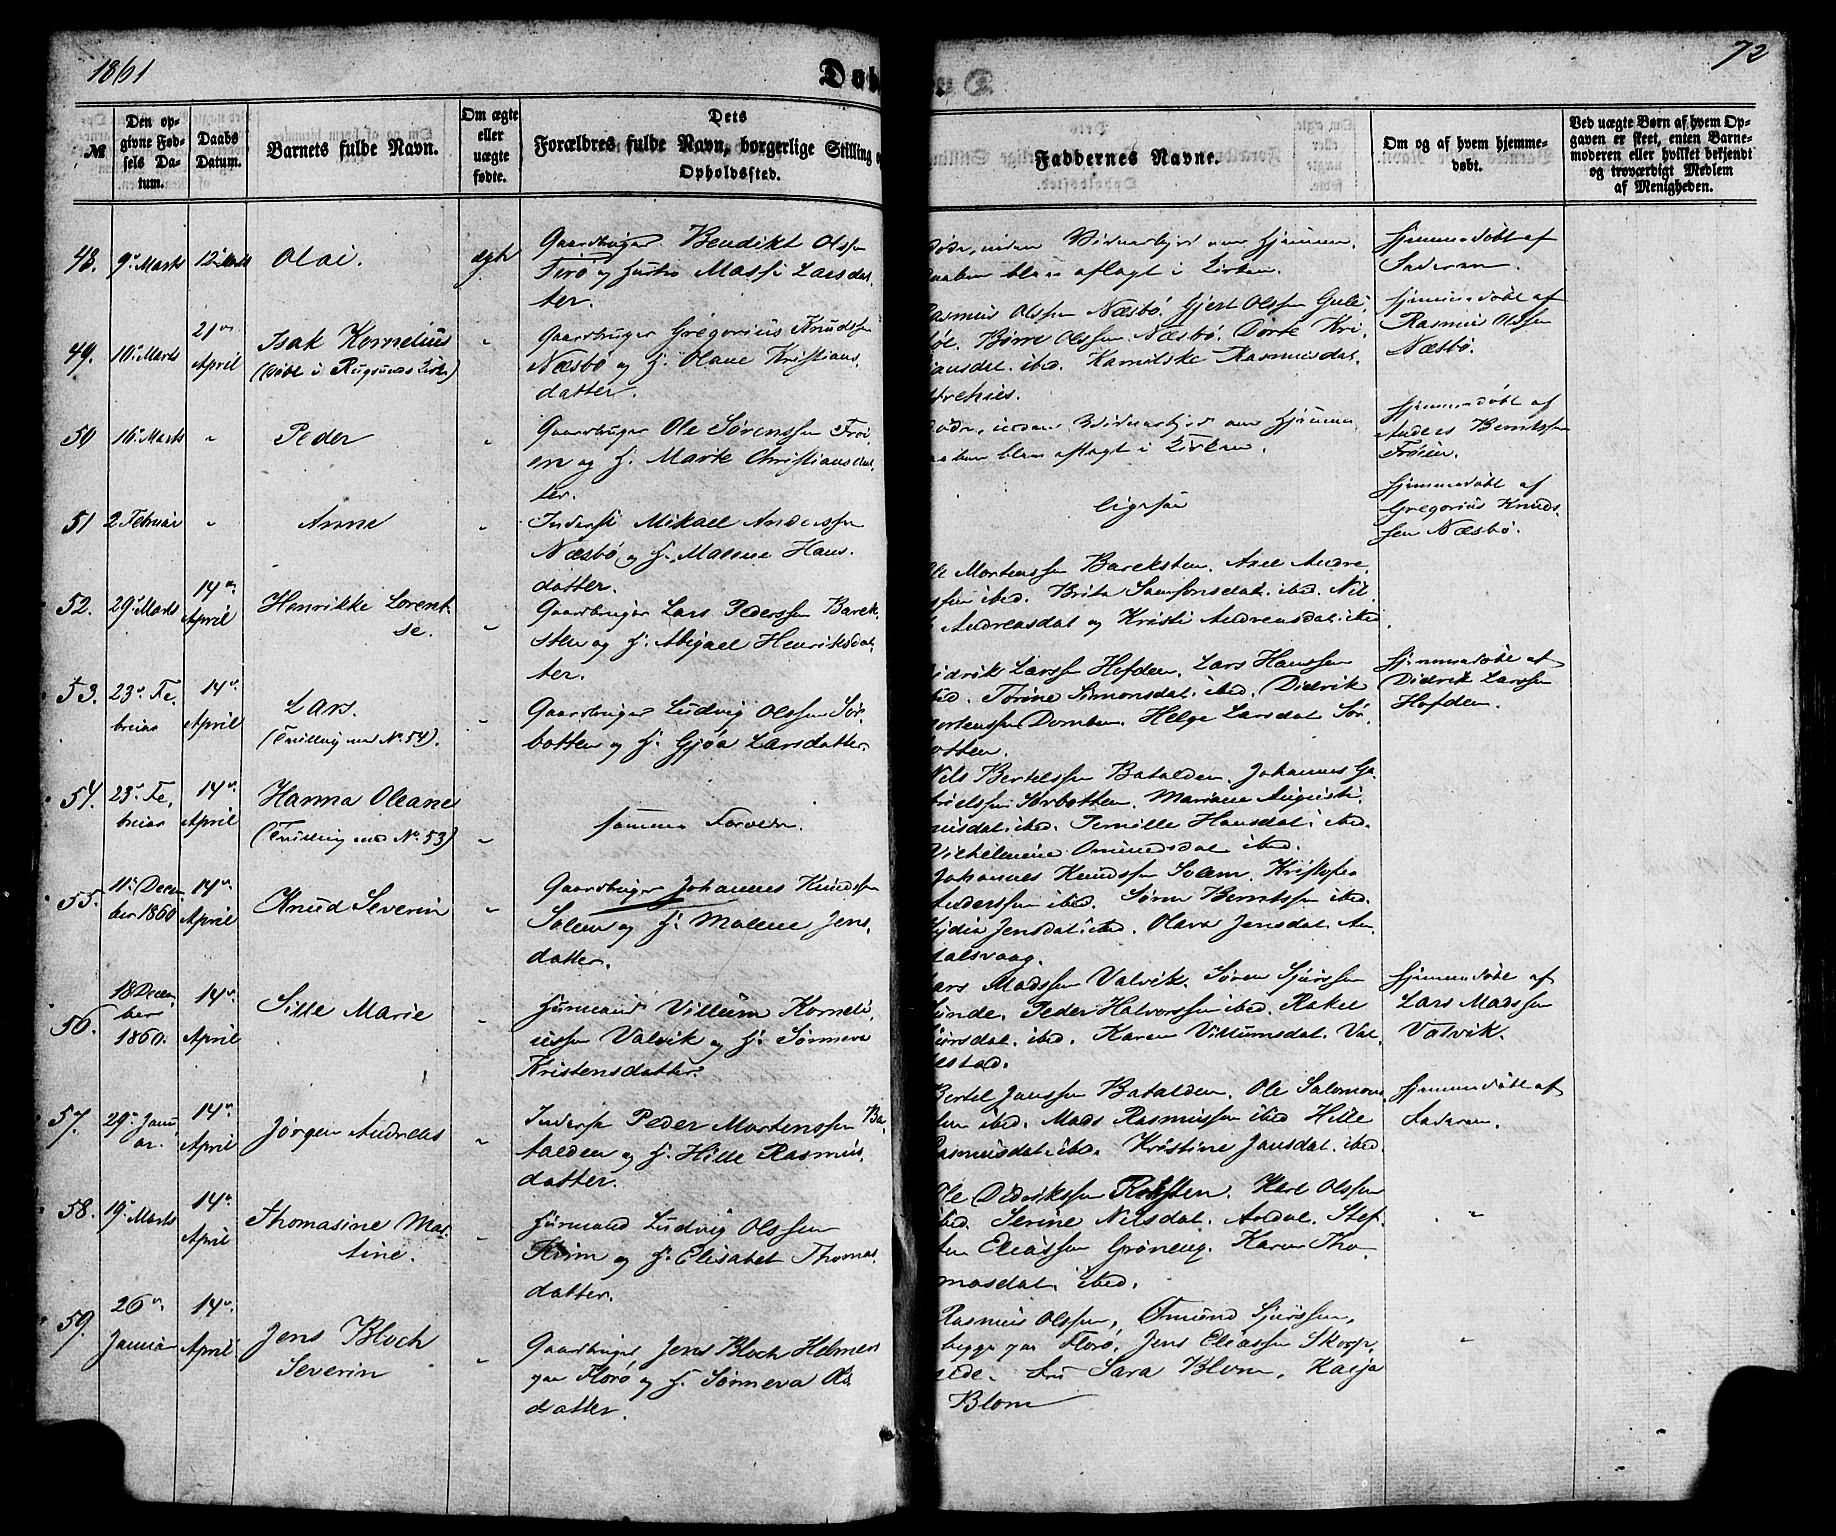 1861
Døb
72
№
Den opgivne Fødsels Datum.
Daabs Datum.
Barnets fulde Navn.
Om ægte eller uægte fødte.
Dets Forældres fulde Navn, borgerlige Stilling o
Opholdssted.
Faddernes Navne.
Om og af hvem hjemmedøbt.
Ved uægte Børn af hvem Opgaven er skeet, enten Barnemoderen eller hvilket bekjendt og troværdigt Medlem af Menigheden.
48. 9de Marts
Olai.
ægte
Gaardbruger Bendikt Olssen
og Hustru Massi Larsdat-
ter.
blev aflagt i Kirken.
Hjemmedøbt af
Faderen.
49. 10de Marts
21de
April
Isak Kornelius
(døbt i Rugsunds Kirke)
Gaardbruger Gregorius Knudssen
Næsbø og H. Olave Kristians-
datter.
Rasmus Olssen Næsbø. Gjert Olssen
Børre Olssen Næsbø. Dorte Kri-
ibid. Rasmusdat.
Hjemmedøbt af
Rasmus Olssen
Næsbø.
50 16de Marts
Peder
Gaardbruger Ole Sørenssen Frøi-
en og H. Marte Christiansdat-
ter.
blev aflagt i Kirken.
Hjemmedøbt af
Anders
Frøien.
51 2 Februar
Anne
Inderst Mikael Anderssen
Næsbø og H. Malene Hans-
datter.
ligesaa
Hjemmedøbt af
Gregorius Knuds-
sen Næsbø.
52. 29de Marts
14de
April
Henrikke Lorent-
se.
Gaardbruger Lars Pederssen Barek-
sten og H. Abigael Henriksdat-
ter.
Ole Mortenssen Bareksten. Andre-
ssen ibid. Brita Samsonsdat. ibid. Nil-
Andreasdat og Kristi Andreasdat. ibid.
53. 23de Fe-
bruar
14de
April
Lars.
(Tvilling med No. 54).
Gaardbruger Ludvig Olssen Sør-
botten og H. Gjøa Larsdatter
Didrik Larssen Hofden. Lars Hanssen
ibid. Torine Simonsdat. ibid. Didrik
Mortenssen Domben. Helge Larsdat. Sør-
botten.
Hjemmedøbt af
Didrik Larssen
Hofden.
54. 23de Fe-
bruar
14de
April
Hanna Oleane
(Tvilling med No. 53)
samme Forældre.
Nils Bertelssen Batalden. Johannes Ga-
brielssen Sørbotten. Mariane Augusti-
nusdat. ibid. Pernille Hansdat. ibid.
Vilhelmine Omundsdat. ibid.
55. 11te Decem-
ber 1860
14de
April
Knud Severin
Gaardbruger Johannes Knudssen
Solem og H. Malene Jens-
datter.
Johannes Knudssen Solem. Kristofer
Anderssen ibid. Søren Berntssen ibid.
Lydia Jensdat. ibid. Olava Jensdat. An-
dalsvaag.
56. 18 Decem-
ber
1860.
14de
April
Sille Marie
Husmand Villum Korneli-
ussen Valvik og H. Sørneva
Kristensdatter.
Lars Madssen Valvik. Søren Sjurssen
Sunde. Peder Halvorssen ibid. Rakel
Sjursdat. ibid. Karen Villumsdat. Val-
Hjemmedøbt af
Lars Madssen
Valvik.
57. 29de Janu-
ar.
14de
April
Jørgen Andreas
Inderst Peder Mortenssen Ba-
talden og H. Hille Rasmus-
datter.
Bertel Janssen Batalden. Ole Salomons-
sen ibid. Mads Rasmussen ibid. Hille
Rasmusdat. ibid. Kristine Jansdat. ibid.
Hjemmedøbt af
Faderen.
58. 19de Marts
14de
April
Thomasine Mar-
tine.
Husmand Ludvig Olssen
og H. Elisabet Thomas-
datter.
Ole Didrikssen Olssen
ibid. Serine Nilsdat. Stef-
fen Eliassen Grøneng. Karen Tho-
masdat. ibid.
59. 26de
Januar
14de
April
Jens Bloch
Severin
Gaardbruger Jens Bloch Helmers
paa Florø og H. Sørneva Ols-
datter.
Rasmus Olssen, Ømund Sjurssen,
begge paa Florø, Jens Eliassen Skorp-
Fru Sara Blom, Kaja
Blom